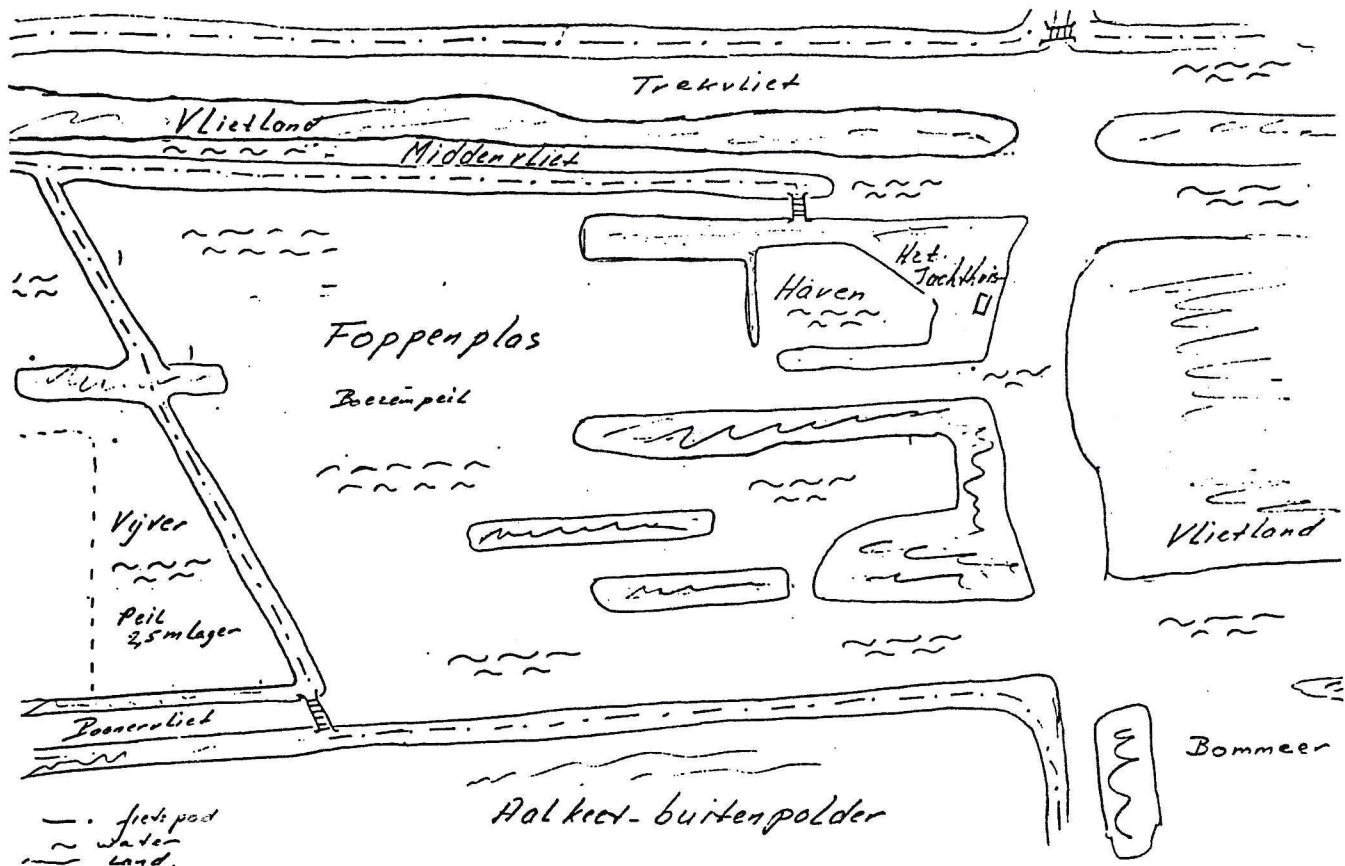 Trekvliet
Vlietland
Middenvliet
Het
Jachthuis
Haven
Foppenplas
Boezempeil
Vijver
Peil
2,5 m lager
Vlietland
Boonervliet
Bommeer
Aalkeet-buitenpolder
fietspad
water
land.